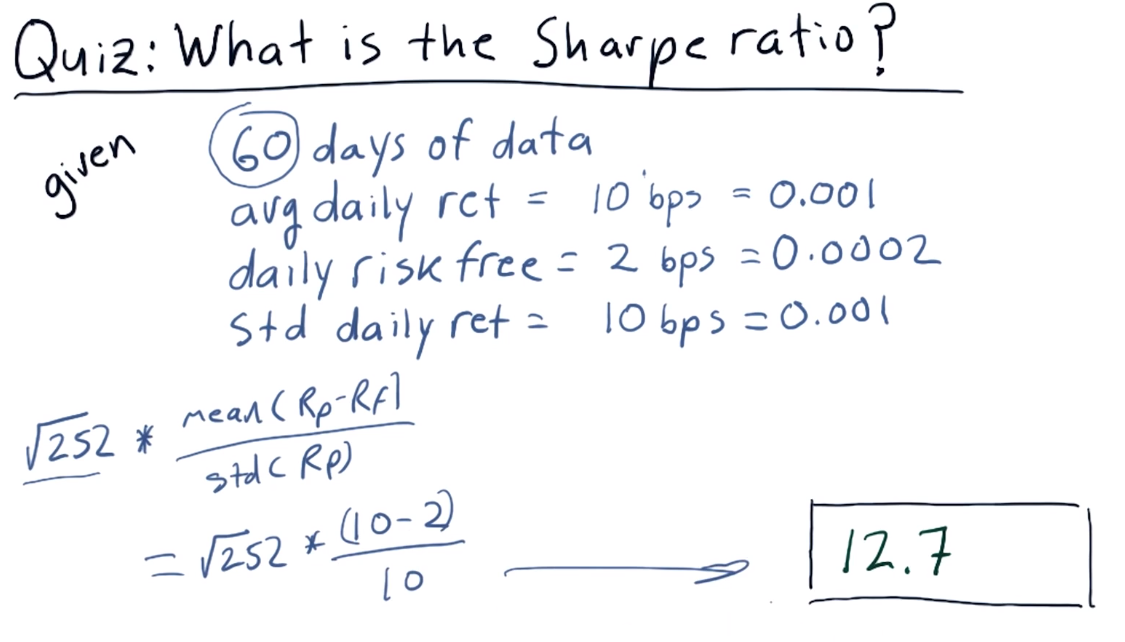 Quiz: What is the Sharpe ratio?
given
60 days of data
avg daily ret = 10 bps = 0.001
daily risk free = 2 bps = 0.0002
std daily ret = 10 bps = 0.001
√252 * mean(Rp-Rf] / std(Rp)
= √252 * (10-2) / 10
12.7